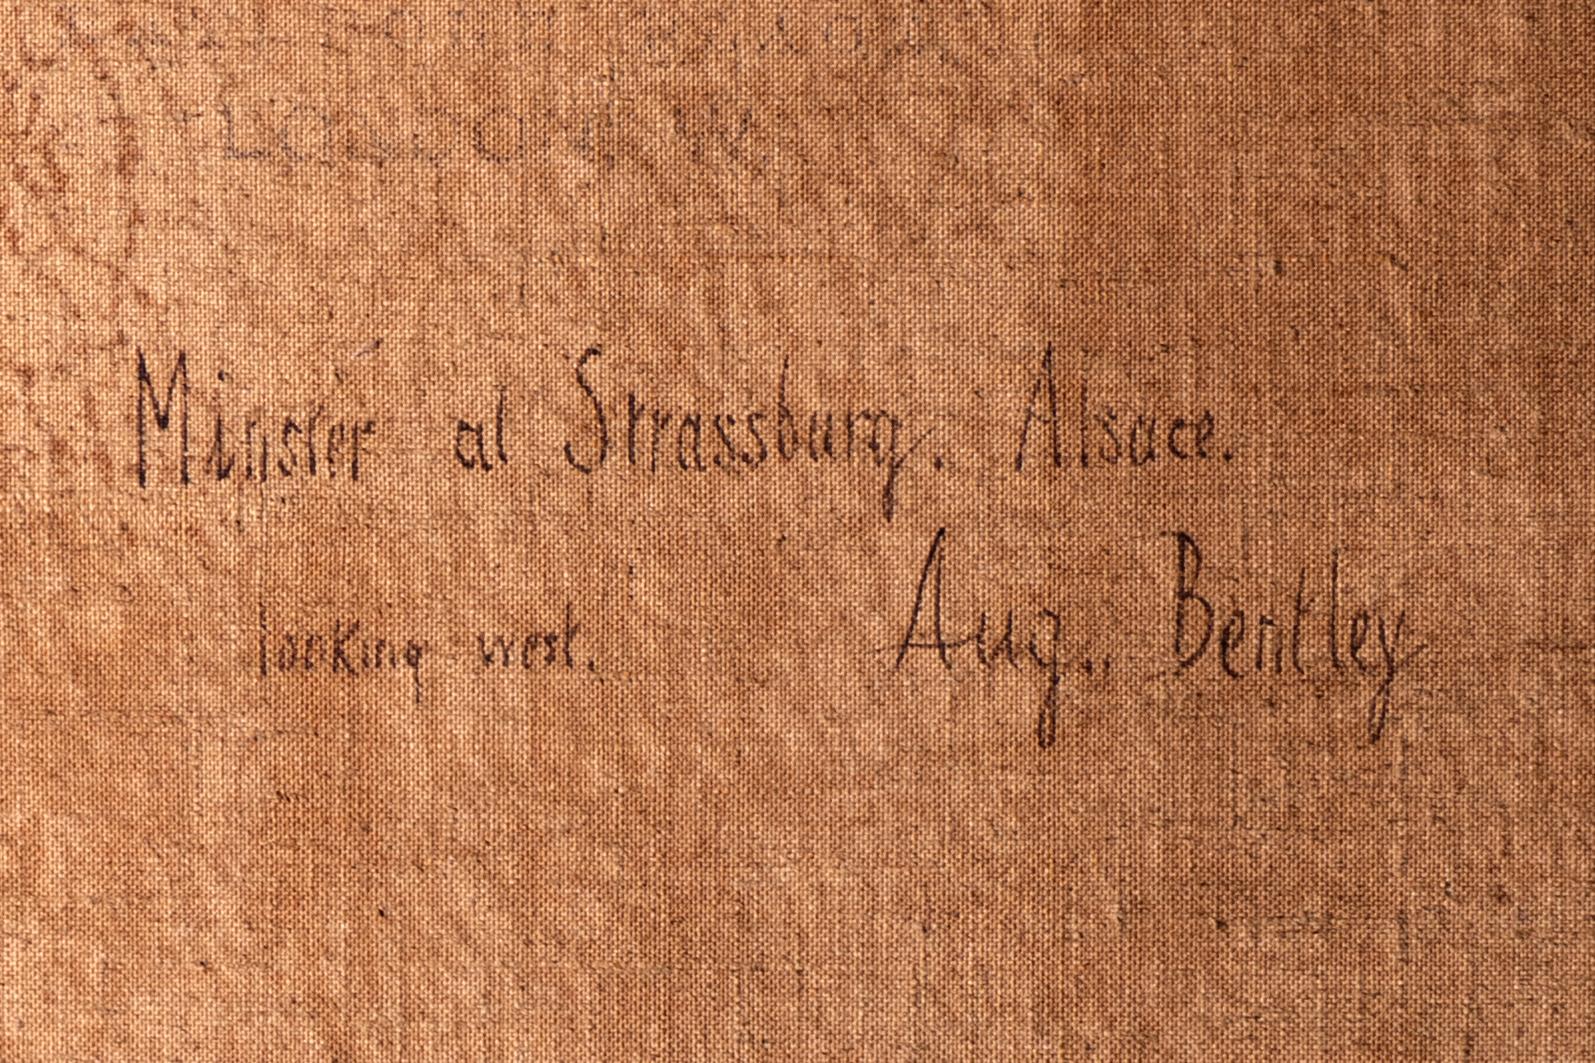 Minster at Strassburg. Alsace.
looking west.
Aug. Bentley